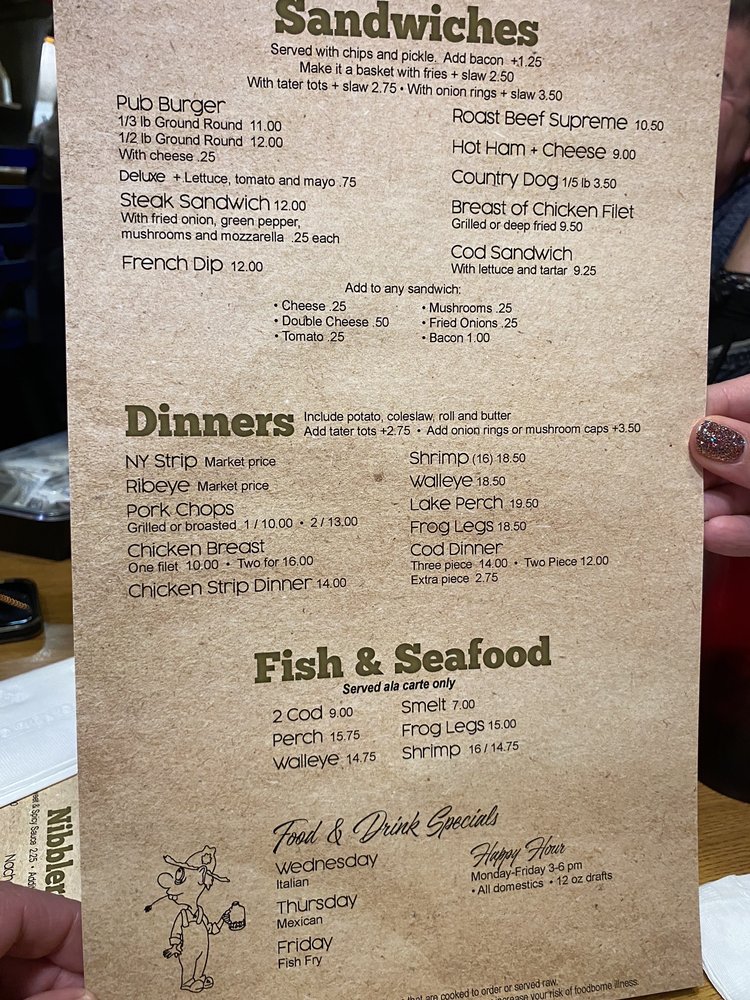 Sandwiches
Served with chips and pickle. Add bacon +1.25
Make it a basket with fries + slaw 2.50
With tater tots + slaw 2.75 • With onion rings + slaw 3.50
Pub Burger
1/3 lb Ground Round 11.00
1/2 lb Ground Round 12.00
With cheese .25
Deluxe + Lettuce, tomato and mayo .75
Steak Sandwich 12.00
With fried onion, green pepper,
mushrooms and mozzarella .25 each
French Dip 12.00
Roast Beef Supreme 10.50
Hot Ham + Cheese 9.00
Country Dog 1/5 lb 3.50
Breast of Chicken Filet
Grilled or deep fried 9.50
Cod Sandwich
With lettuce and tartar 9.25
Add to any sandwich:
• Cheese .25
• Double Cheese .50
• Tomato .25
• Mushrooms .25
• Fried Onions .25
• Bacon 1.00
Dinners
Include potato, coleslaw, roll and butter
Add tater tots +2.75 • Add onion rings or mushroom caps +3.50
NY Strip Market price
Ribeye Market price
Pork Chops
Grilled or broasted 1 / 10.00 • 2 / 13.00
Chicken Breast
One filet 10.00 • Two for 16.00
Chicken Strip Dinner 14.00
Shrimp (16) 18.50
Walleye 18.50
Lake Perch 19.50
Frog Legs 18.50
Cod Dinner
Three piece 14.00 • Two Piece 12.00
Extra piece 2.75
Fish & Seafood
Served ala carte only
2 Cod 9.00
Perch 15.75
Walleye 14.75
Smelt 7.00
Frog Legs 15.00
Shrimp 16 / 14.75
Food & Drink Specials
Wednesday
Italian
Thursday
Mexican
Friday
Fish Fry
Happy Hour
Monday-Friday 3-6 pm
• All domestics • 12 oz drafts
that are cooked to order or served raw.
increase your risk of foodborne illness.
Nibbler
& Spicy Sauce 2.25 •
Nach